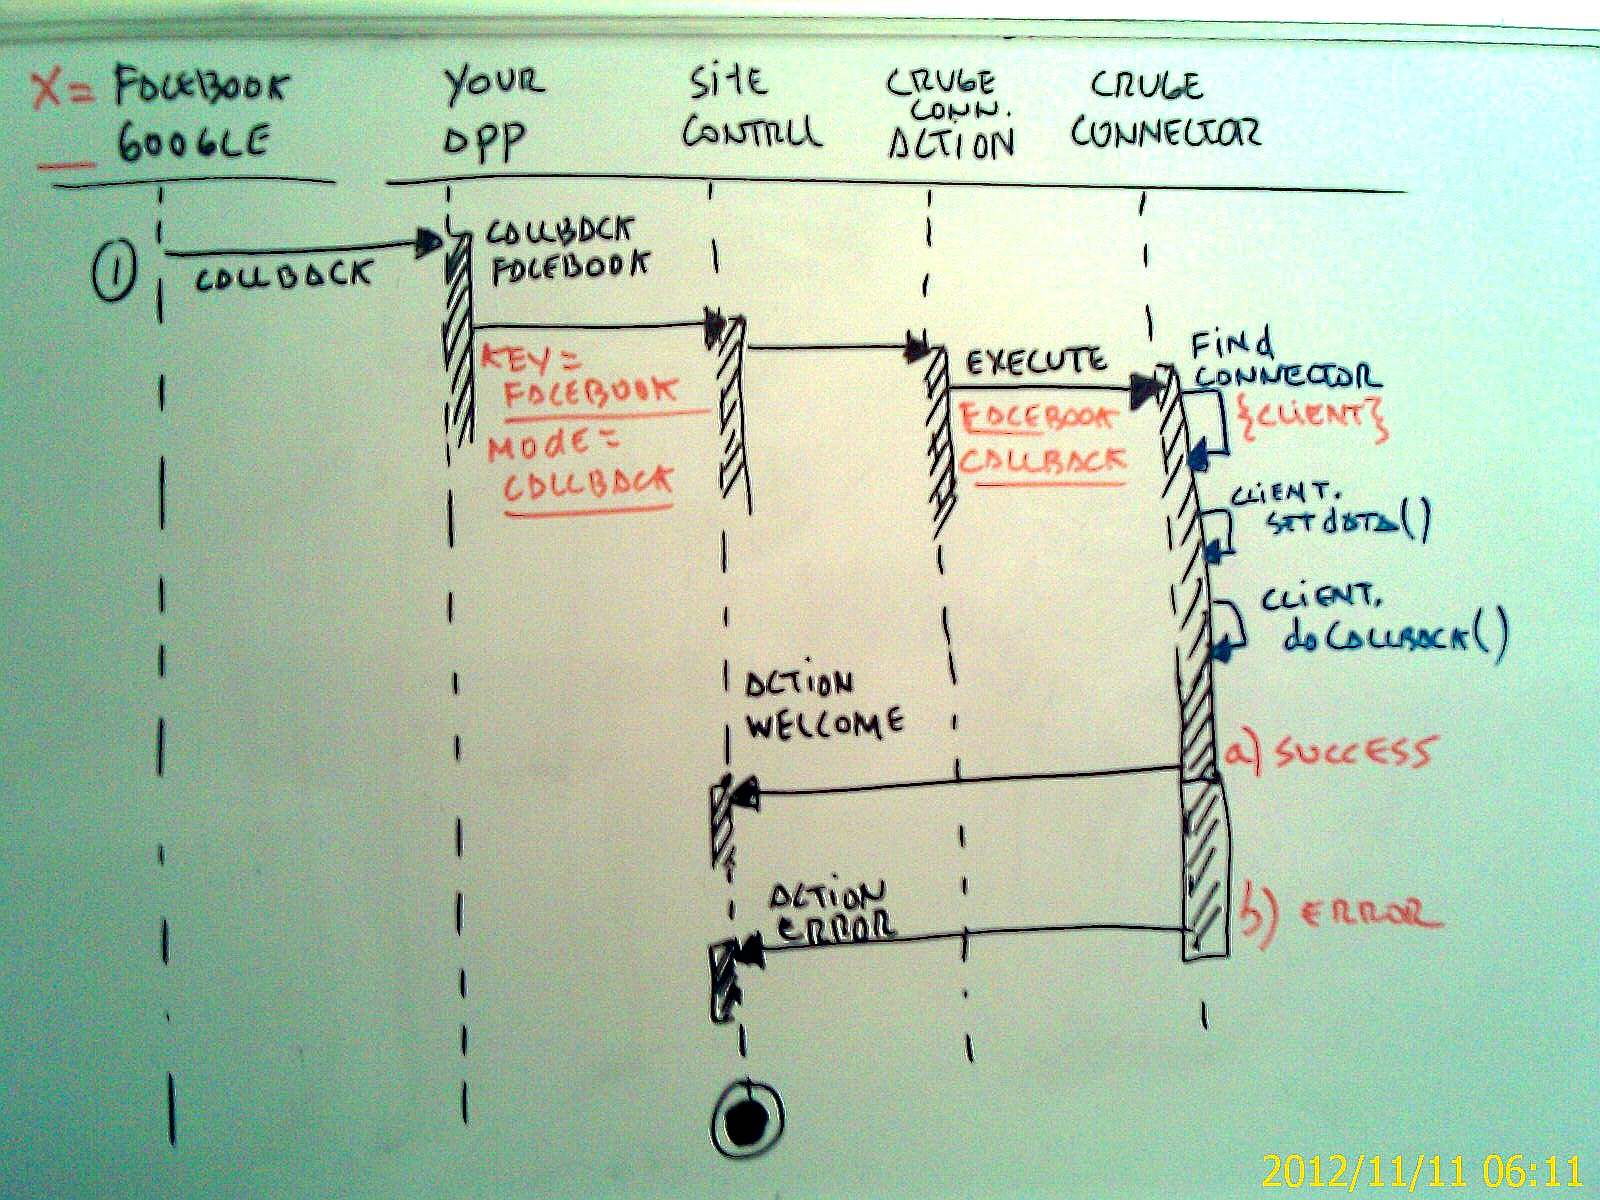 X = FACEBOOK
GOOGLE
YOUR
APP
SITE
CONTRLL
CRUGE
CONN.
ACTION
CRUGE
CONNECTOR
1
CALLBACK
CALLBACK
FACEBOOK
KEY=
FACEBOOK
MODE=
CALLBACK
EXECUTE
FACEBOOK
CALLBACK
FINd
CONNECTOR
{CLIENT}
CLIENT.
SETdATA()
CLIENT.
doCALLBACK()
ACTION
WELCOME
a) SUCCESS
ACTION
ERROR
b) ERROR
2012/11/11 06:11